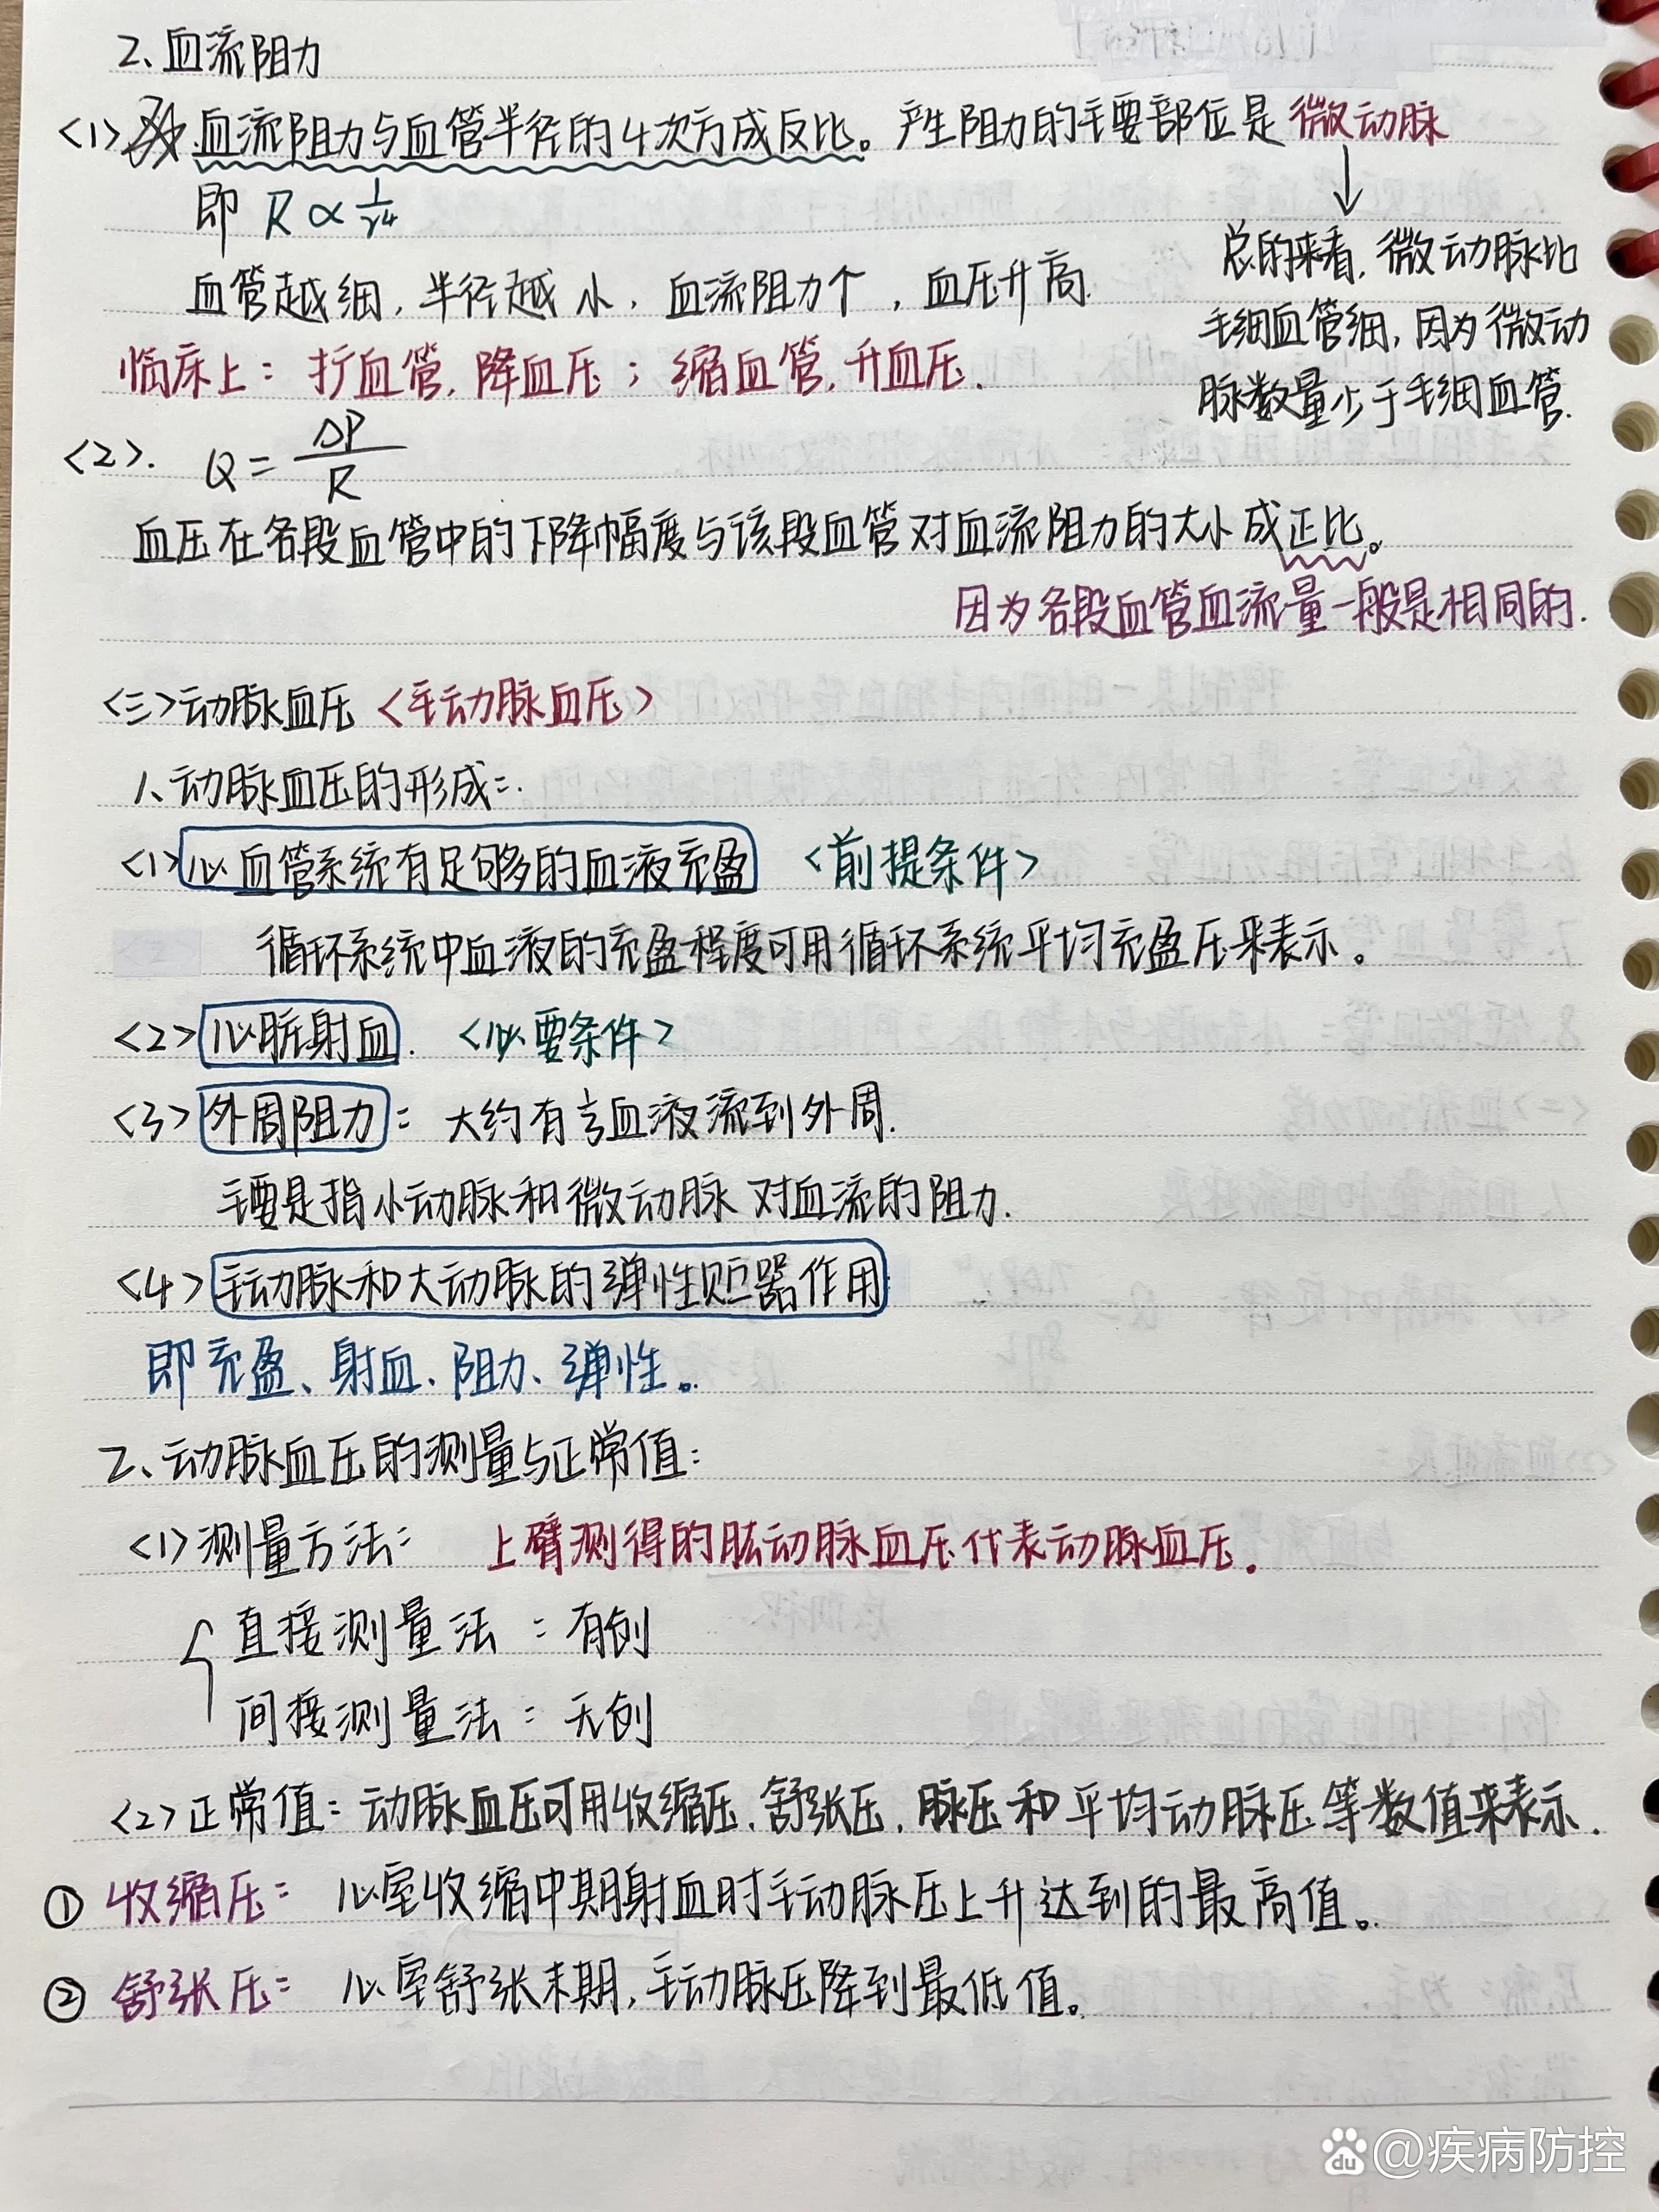 2、血流阻力
<1> 血流阻力与血管半径的4次方成反比。产生阻力的主要部位是微动脉
即 R∝1/r⁴
总的来看，微动脉比
毛细血管细，因为微动
脉数量少于毛细血管.
血管越细，半径越小，血流阻力个，血压升高.
临床上：扩血管，降血压；缩血管，升血压.
<2>. Q=ΔP/R
血压在各段血管中的下降幅度与该段血管对血流阻力的大小成正比。
因为各段血管血流量一般是相同的.
<三>动脉血压 <主动脉血压>
1、动脉血压的形成：.
<1>心血管系统有足够多的血液充盈 <前提条件>
循环系统中血液的充盈程度可用循环系统平均充盈压来表示。
<2>心脏射血. <必要条件>
<3>外周阻力：大约有⅓血液流到外周.
主要是指小动脉和微动脉对血流的阻力.
<4>主动脉和大动脉的弹性贮器作用
即充盈、射血、阻力、弹性。
2、动脉血压的测量与正常值：
<1>测量方法：上臂测得的肱动脉血压代表动脉血压.
直接测量法：有创
间接测量法：无创
<2>正常值：动脉血压可用收缩压、舒张压、脉压和平均动脉压等数值来表示.
① 收缩压：心室收缩中期射血时主动脉压上升达到的最高值。
② 舒张压：心室舒张末期，主动脉压降到最低值。
du @疾病防控